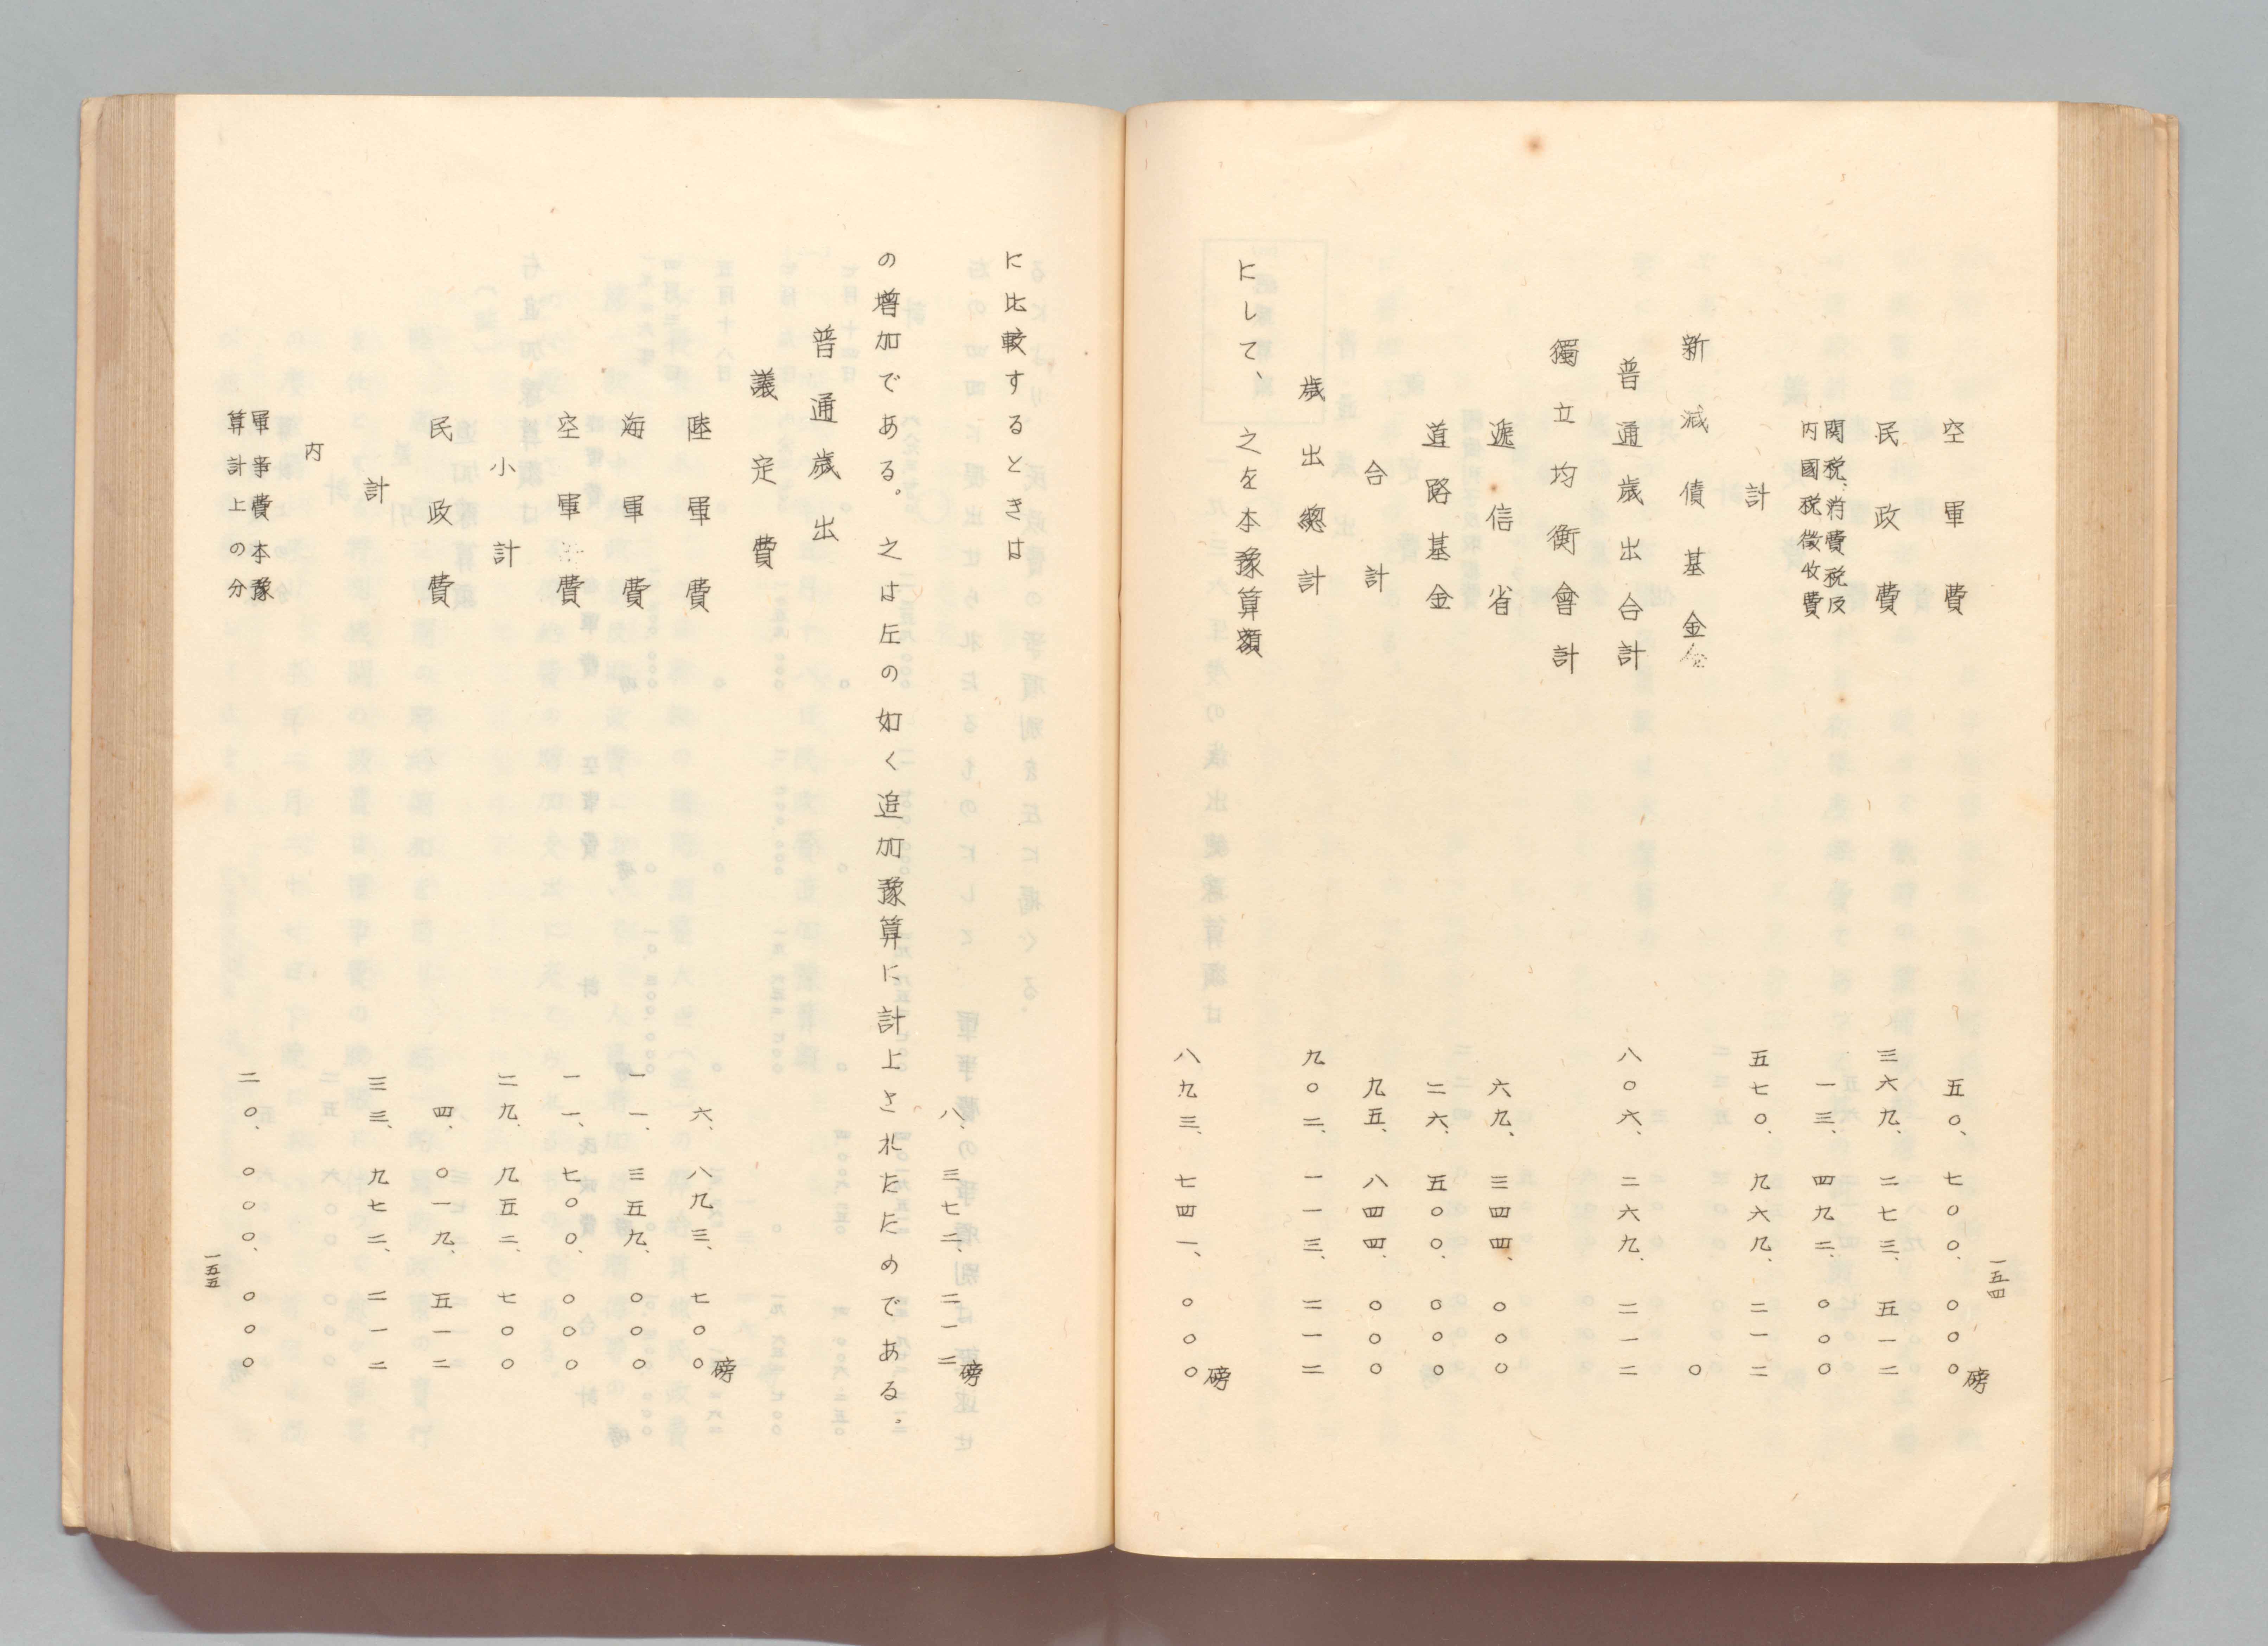 空軍費 五〇、七〇〇、〇〇〇磅
民政費 三六九、二七三、五一二
関税、消費税及
内國税徴收費 一三、四九二、〇〇〇
計 五七〇、九六九、二一二
新減債基金 〇
普通歳出合計 八〇六、二六九、二一二
獨立均衡會計
遞信省 六九、三四四、〇〇〇
道路基金 二六、五〇〇、〇〇〇
合計 九五、八四四、〇〇〇
歳出總計 九〇二、一一三、二一二
にして、之を本豫算額
八九三、七四一、〇〇〇磅
一五四
に比較するときは
八、三七二、二一二磅
の増加である。之は左の如く追加豫算に計上されたためである。
普通歳出
議定費
陸軍費 六、八九三、七〇〇磅
海軍費 一一、三五九、〇〇〇
空軍費 一一、七〇〇、〇〇〇
小計 二九、九五二、七〇〇
民政費 四、〇一九、五一二
計 三三、九七二、二一二
内
軍事費本豫
算計上の分 二〇、〇〇〇、〇〇〇
一五五